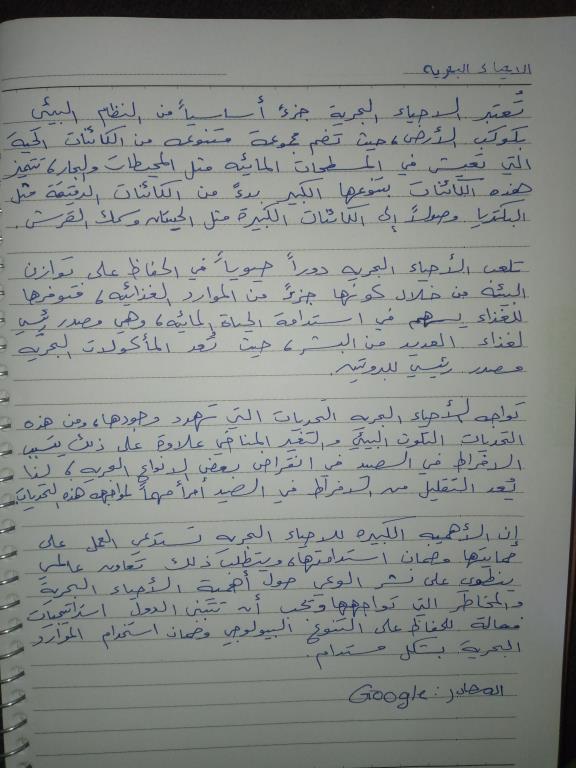 الاحياء البحريه
تُعتبر الاحياء البحرية جزءً أساسياً من النظام البيئي
بكوكب الأرض، حيث تضم مجموعة متنوعه من الكائنات الحية
التي تعيش في المسطحات المائيه مثل المحيطات والبحار، تتميز
هذه الكائنات بتنوعها الكبير بدءً من الكائنات الدقيقة مثل
البكتريا وصولاً إلى الكائنات الكبيرة مثل الحيتان وسمك القرش.
تلعب الأحياء البحريه دوراً حيوياً في الحفاظ على توازن
البيئه من خلال كونها جزءً من الموارد الغذائيه، فتوفرها
للغذاء يسهم في استدامة الحياة المائيه، وهي مصدر رئيسي
لغذاء العديد من البشر، حيث تُعد المأكولات البحريه
مصدر رئيسي للبروتين.
تواجه الأحياء البحريه التحديات التي تهدد وجودها، ومن هذه
التحديات التلوث البيئي والتغير المناخي علاوة على ذلك يتسبب
الافراط في الصيد في انقراض بعض الانواع البحريه، لذا
يُعد التقليل من الافراط في الصيد أمراً مهماً لمواجهه هذه التحديات.
إن الأهميه الكبيره للاحياء البحريه تستدعي العمل على
حمايتها وضمان استدامتها، ويتطلب ذلك تعاون عالمي
ينطوي على نشر الوعي حول أهمية الأحياء البحرية
والمخاطر التي تواجهها ويجب أن تتبنى الدول استراتيجيات
فعالة للحفاظ على التنوع البيولوجي وضمان استخدام الموارد
البحرية بشكل مستدام.
المصادر: Google